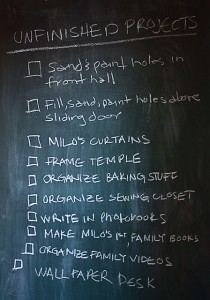 UNFINISHED PROJECTS
Sand & paint holes in
front hall
Fill, sand, paint holes above
sliding door
MILO'S CURTAINS
FRAME TEMPLE
ORGANIZE BAKING STUFF
ORGANIZE SEWING CLOSET
WRITE IN PHOTOBOOKS
MAKE MILO'S 1ST FAMILY BOOKS
ORGANIZE FAMILY VIDEOS
WALLPAPER DESK